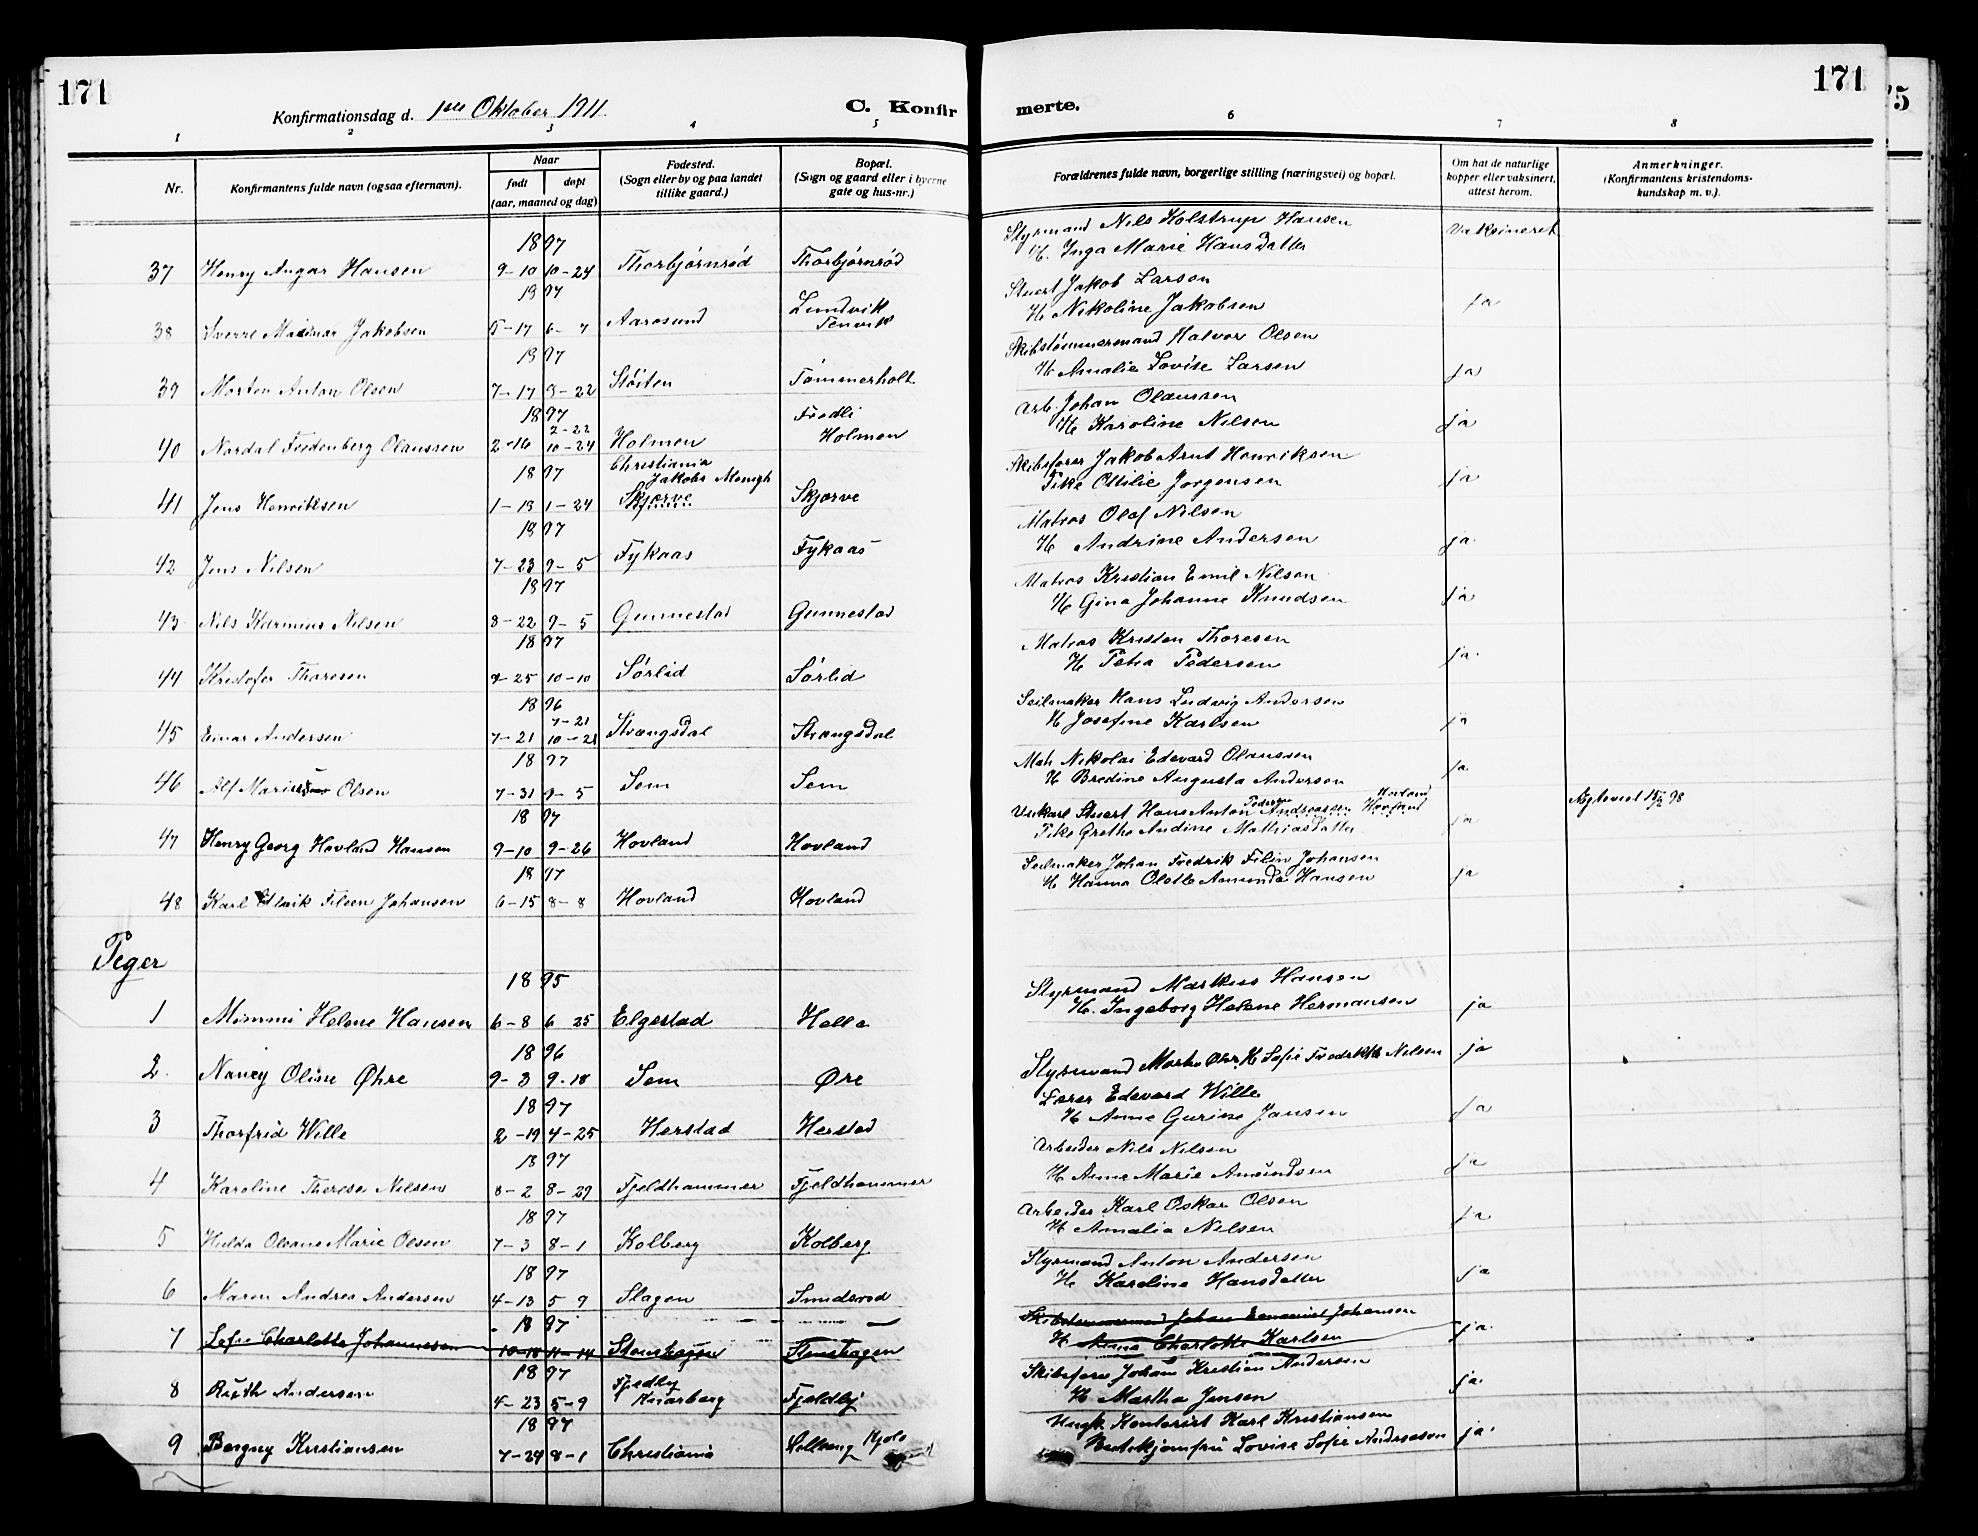 171
Konfirmationsdag d. 1ste Oktober 1911.
C. Konfir
merte.
171
75
1 2 3 4 5 6 7 8
Nr.
Konfirmantens fulde navn (ogsaa efternavn).
Naar
født døpt
(aar, maaned og dag)
Fødested.
(Sogn eller by og paa landet
tillike gaard.)
Bopæl.
(Sogn og gaard eller i byerne
gate og hus-nr.)
Forældrenes fulde navn, borgerlige stilling (næringsvei) og bopæl.
Om hat de naturlige
kopper eller vaksinert,
attest herom.
Anmerkninger.
(Konfirmantens kristendoms-
kundskap m. v.).
1897
Styrmand Nils Holstrup Hansen Vaksineret
37 Henry Angar Hansen 9-10 10-24 Thorbjørnrød Thorbjørnrød H. Inga Marie Hansdatter
1897
Stuert Jakob Larsen
Lundvik
38 Sverre Jakobsen 5-17 6-7 Aarosund Tenvik H. Nikoline Jakobsen ja
1897
Skibstømmermand Halvor Olsen
39 Morten Anton Olsen 7-17 8-22 Støiten Tømmerholt H. Amalie Lovise Larsen ja
1897
2-22
Fredli
Arb. Johan Olaussen
40 Nordal Fredenberg Olaussen 2-16 10-24 Holmen Holmen H. Karoline Nilsen ja
1897
Christiania
Jakobs Menigh
Skibsfører Jakob Arnt Henriksen
41 Jens Henriksen 1-19 1-24 Skjærve Skjærve Pike Ottilie Jørgensen ja
1897
Matros Olaf Nilsen
42 Jens Nilsen 7-23 9-5 Fykaas Fykaas H. Andrine Andersen ja
1897
Matros Kristian Emil Nilsen
43 Nils Karinius Nilsen 8-22 9-5 Gunnestad Gunnestad H. Gina Johanne Knudsen ja
1897
Matros Kristen Thoresen
44 Kristofer Thoresen 9-25 10-10 Sørlid Sørlid H. Petra Pedersen ja
1896
7-21
Seilmaker Hans Ludvig Andersen
45 Einar Andersen 7-21 10-21 Strengsdal Strengsdal H. Josefine Karlsen ja
1897
Matr. Nikolai Edevard Olaussen
46 Alf Olsen 7-31 9-5 Sem Sem H. Bredine Augusta Andersen ja
1897
Ungkarl Stuert Hans Anton Pedersen Andreassen Hovland Hovland
47 Henry Georg Hovland Hansen 9-10 9-26 Hovland Hovland Pike Grethe Andine Mathiasdatter ja
1897
Seilmaker Johan Fredrik Filin Johansen
48 Karl Fileen Johansen 6-15 8-8 Hovland Hovland H. Hanna Olette Amunda Hansen ja
Piger
1895
Styrmand Markus Hansen
1 Mimmi Helene Hansen 6-8 6 25 Elgestad Helle H. Ingeborg Helene Hermansen ja
1896
2 Nancy Oline Øhre 9-3 9-18 Sem Øre Styrmand Martin Øhre, H. Sofie Fredrikke Nilsen ja
1897
Lærer Edevard Wille
3 Thorfrid Wille 2-19 4-25 Herstad Herstad H. Anne Gurine Jansen ja
1897
Arbeider Nils Nilsen
4 Karoline Therese Nilsen 8-2 8-29 Fjeldhammer Fjeldhammer H. Anne Marie Amundsen ja
1897
Arbeider Karl Oskar Olsen
5 Hulda Oleane Marie Olsen 7-3 8-1 Kolberg Kolberg H. Amalia Nilsen ja
1897
Styrmand Anton Andersen
6 Maren Andrea Andersen 4-13 5 9 Slagen Sunderød H. Karoline Hansdatter ja
1897
Skibstømmermand Johan Johansen
7 Sofie Charlotte Johannesen 10-18 11-14 Stenshagen Stenshagen H. Anna Charlotte Karlsen ja
1897
Fjeldby
Skibsfører Johan Kristian Andersen
8 Ruth Andersen 4-23 5-9 Knarberg Fjeldby H. Martha Jensen ja
1897
Ungk. Kontorist Karl Kristiansen
9 Borgny Kristiansen 7-24 8-1 Christiania Solvang Kjole Lovise Sofie Andreasen ja